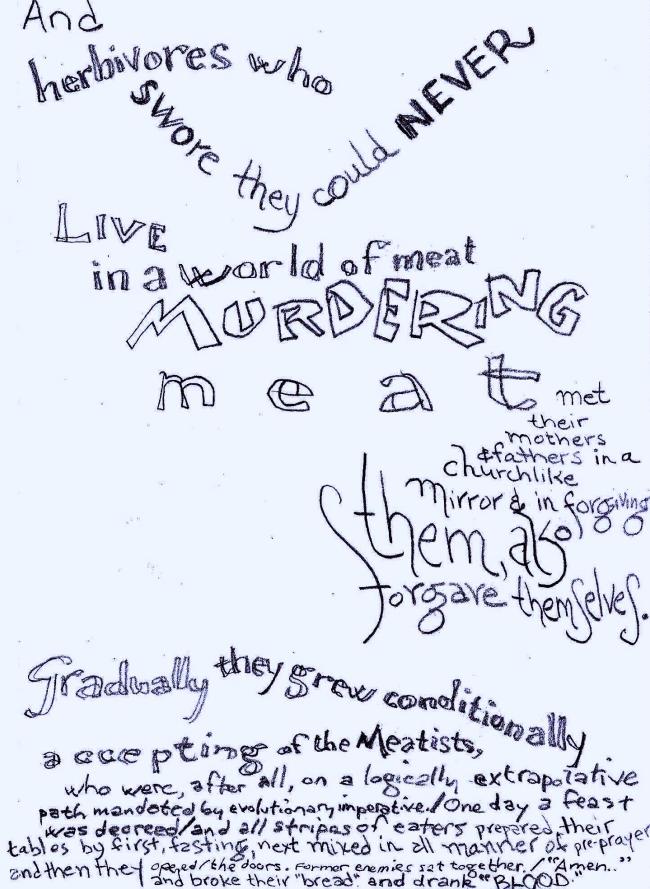 And
herbivores who
swore they could NEVER
LIVE
in a world of meat
MURDERING
meat met
their
mothers
& fathers in a
churchlike
mirror & in forgiving
them, also
forgave themselves.
Gradually they grew conditionally
accepting of the Meatists,
who were, after all, on a logically extrapolative
path mandated by evolutionary imperative./One day a feast
was decreed/and all stripes of eaters prepared their
tables by first, fasting, next mixed in all manner of pre-prayer
and then they opened/the doors. Former enemies sat together./"Amen.."
and broke their "bread" and drank "BLOOD."